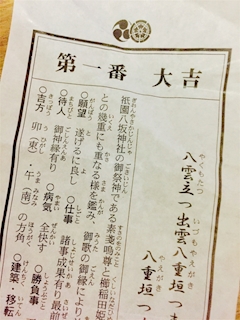 第一番 大吉
八雲立つ出雲八重垣つ
八重垣つ
祇園八坂神社の御祭神である素戔嗚尊と櫛稲田姫
との幾重にも重なる様を鑑み、御歌の御縁により
○願望 遂げるに良し ○仕事 諸事成果有り最前
○待人 御神縁有り ○病気 全快す ○勝負事
○吉方 卯(東)・午(南)の方角。○建築・移転